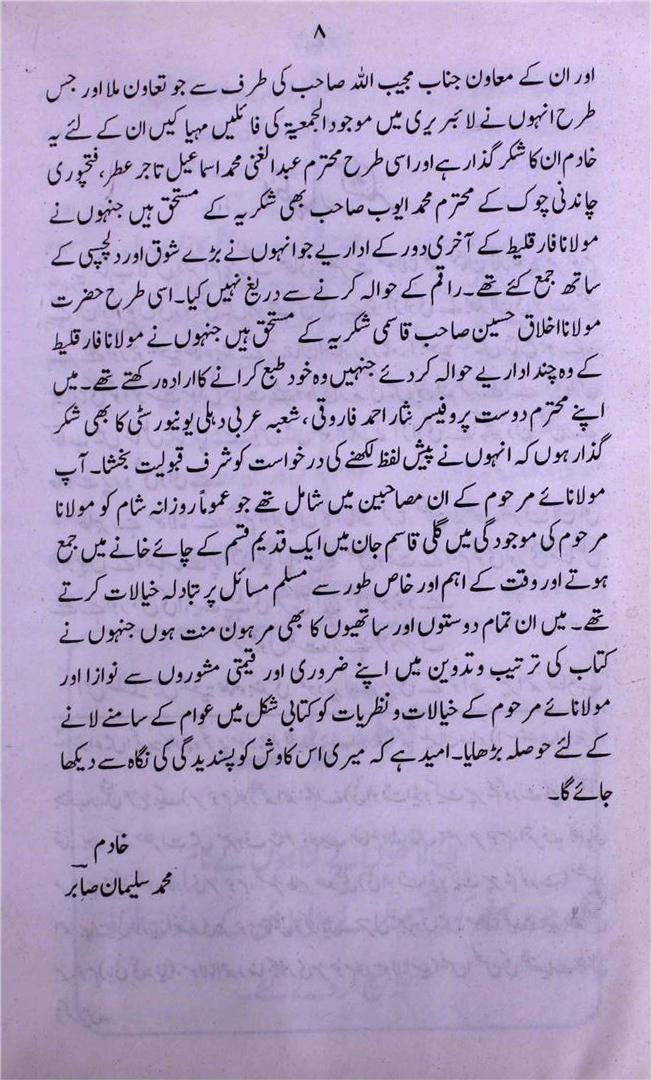 ۸
اور ان کے معاون جناب مجیب اللہ صاحب کی طرف سے جو تعاون ملا اور جس
طرح انہوں نے لائبریری میں موجود الجمعیۃ کی فائلیں مہیا کیں ان کے لئے یہ
خادم ان کا شکر گذار ہے اور اسی طرح محترم عبد الغنی محمد اسماعیل تاجر عطر، فتحپوری
چاندنی چوک کے محترم محمد ایوب صاحب بھی شکریہ کے مستحق ہیں جنہوں نے
مولانا فارقلیط کے آخری دور کے اداریے جو انہوں نے بڑے شوق اور دلچسپی کے
ساتھ جمع کئے تھے۔ راقم کے حوالہ کرنے سے دریغ نہیں کیا۔ اسی طرح حضرت
مولانا اخلاق حسین صاحب قاسمی شکریہ کے مستحق ہیں جنہوں نے مولانا فارقلیط
کے وہ چند اداریے حوالہ کر دئے جنہیں وہ خود طبع کرانے کا ارادہ رکھتے تھے۔ میں
اپنے محترم دوست پروفیسر نثار احمد فاروقی، شعبہ عربی دہلی یونیورسٹی کا بھی شکر
گذار ہوں کہ انہوں نے پیش لفظ لکھنے کی درخواست کو شرف قبولیت بخشا۔ آپ
مولانائے مرحوم کے ان مصاحبین میں شامل تھے جو عموماً روزانہ شام کو مولانا
مرحوم کی موجودگی میں گلی قاسم جان میں ایک قدیم قسم کے چائے خانے میں جمع
ہوتے اور وقت کے اہم اور خاص طور سے مسلم مسائل پر تبادلہ خیالات کرتے
تھے۔ میں ان تمام دوستوں اور ساتھیوں کا بھی مرہون منت ہوں جنہوں نے
کتاب کی ترتیب و تدوین میں اپنے ضروری اور قیمتی مشوروں سے نوازا اور
مولانائے مرحوم کے خیالات و نظریات کو کتابی شکل میں عوام کے سامنے لانے
کے لئے حوصلہ بڑھایا۔ امید ہے کہ میری اس کاوش کو پسندیدگی کی نگاہ سے دیکھا
جائے گا۔
خادم
محمد سلیمان صابر